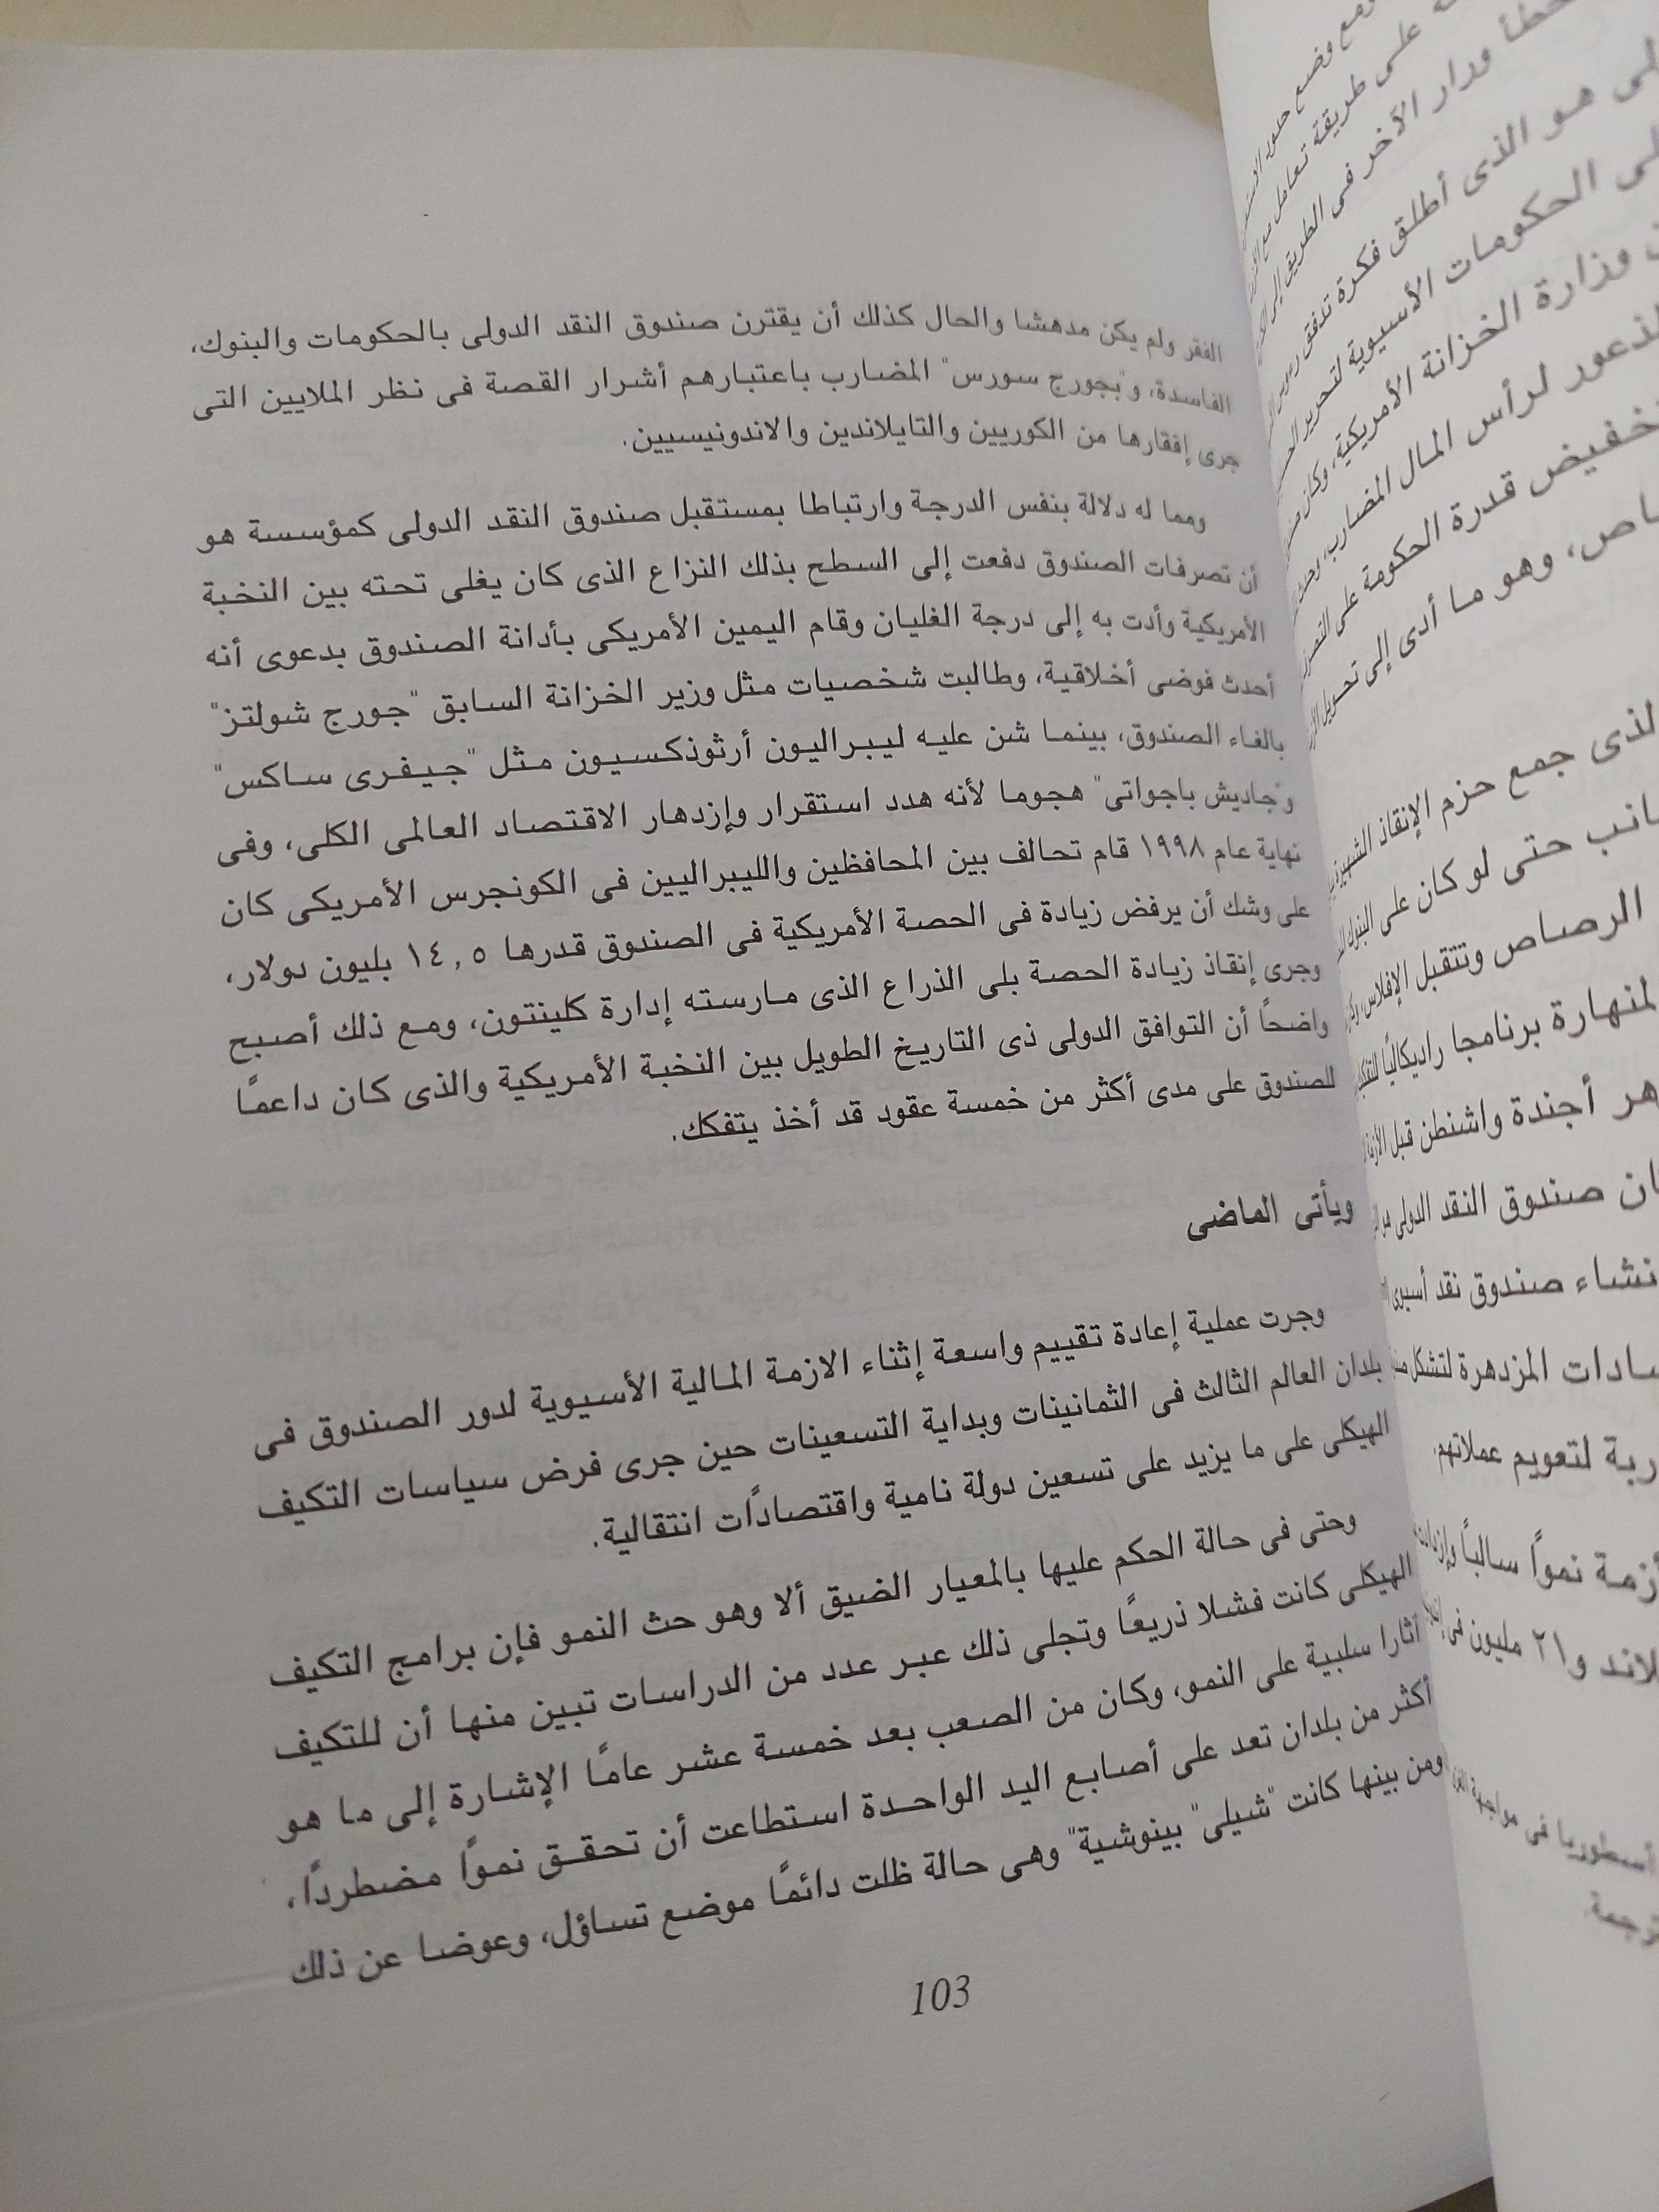 الفقر ولم يكن مدهشا والحال كذلك أن يقترن صندوق النقد الدولى بالحكومات والبنوك،
الفاسدة، و"بجورج سورس" المضارب باعتبارهم أشرار القصة فى نظر الملايين التى
جرى إفقارها من الكوريين والتايلاندين والاندونيسيين.
ومما له دلالة بنفس الدرجة وارتباطا بمستقبل صندوق النقد الدولى كمؤسسة هو
أن تصرفات الصندوق دفعت إلى السطح بذلك النزاع الذى كان يغلى تحته بين النخبة
الأمريكية وأدت به إلى درجة الغليان وقام اليمين الأمريكى بأدانة الصندوق بدعوى أنه
أحدث فوضى أخلاقية، وطالبت شخصيات مثل وزير الخزانة السابق "جورج شولتز"
بالغاء الصندوق، بينما شن عليه ليبراليون أرثوذكسيون مثل "جيفرى ساكس"
و"جاديش باجواتى" هجوما لأنه هدد استقرار وإزدهار الاقتصاد العالمى الكلى، وفى
نهاية عام ١٩٩٨ قام تحالف بين المحافظين والليبراليين فى الكونجرس الأمريكى كان
على وشك أن يرفض زيادة فى الحصة الأمريكية فى الصندوق قدرها ١٤,٥ بليون دولار،
وجرى إنقاذ زيادة الحصة بلى الذراع الذى مارسته إدارة كلينتون، ومع ذلك أصبح
واضحًا أن التوافق الدولى ذى التاريخ الطويل بين النخبة الأمريكية والذى كان داعمًا
للصندوق على مدى أكثر من خمسة عقود قد أخذ يتفكك.
ويأتى الماضى
وجرت عملية إعادة تقييم واسعة إثناء الازمة المالية الأسيوية لدور الصندوق فى
بلدان العالم الثالث فى الثمانينات وبداية التسعينات حين جرى فرض سياسات التكيف
الهيكلى على ما يزيد على تسعين دولة نامية واقتصادًات انتقالية.
وحتى فى حالة الحكم عليها بالمعيار الضيق ألا وهو حث النمو فإن برامج التكيف
الهيكلى كانت فشلا ذريعًا وتجلى ذلك عبر عدد من الدراسات تبين منها أن للتكيف
آثارا سلبية على النمو، وكان من الصعب بعد خمسة عشر عامًا الإشارة إلى ما هو
أكثر من بلدان تعد على أصابع اليد الواحدة استطاعت أن تحقق نموًا مضطردًا،
ومن بينها كانت "شيلى" بينوشية" وهى حالة ظلت دائمًا موضع تساؤل، وعوضا عن ذلك
103
على طريقة تعامل مع
ودار الآخر فى الطريق إلى
هو الذى أطلق فكرة تدفق
الحكومات الأسيوية لتحرير
وزارة الخزانة الأمريكية، وكان
لرأس المال المضارب،
قدرة الحكومة على
وهو ما أدى إلى تحويل
جمع حزم الإنقاذ الشهيرة
حتى لو كان على البنوك
الرصاص وتتقبل الإفلاس،
برنامجا راديكاليًا
أجندة واشنطن قبل
صندوق النقد الدولى
صندوق نقد أسيوى
المزدهرة لتشكل
لتعويم عملاتهم.
نموًا سالبًا
و٢١ مليون فى
أسطوريا فى مواجهة